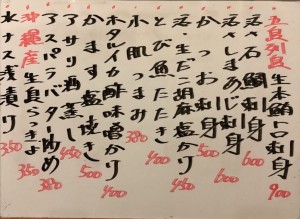 五島列島
生本鮪トロ刺身 900
活〆石鯛刺身 600
活〆しまあじ刺身 600
かつお刺身 500
活・生だこ胡麻塩かり 450
とび魚たたき 400
小肌つまみ 380
ホタルイカ酢味噌かり 400
かます塩焼き 500
アサリ酒蒸し 450
アスパラバター炒め 380
沖縄産 生島らっきょ 350
水ナス浅漬り 350